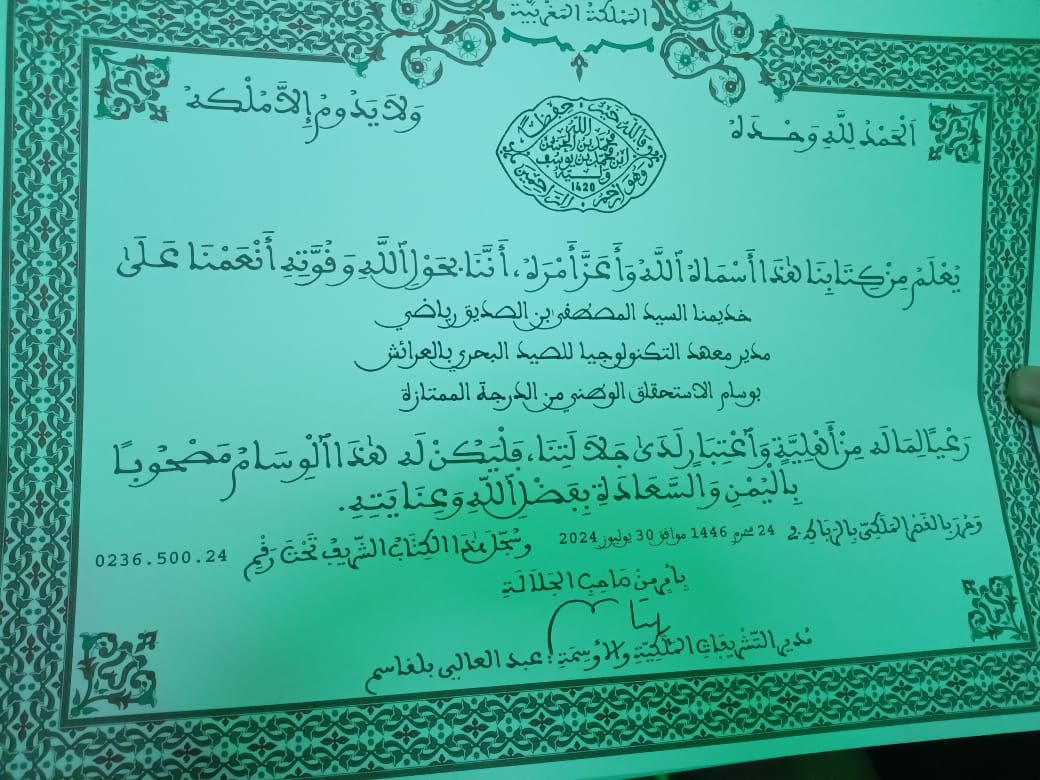 المملكة المغربية
اَلْحَمْدُ لِلَّهِ وَحْدَهُ
وَلاَ يَدُومُ إِلاَّ مُلْكُهُ
الله
محمد بن الحسن
ابن محمد بن يوسف
وليه
1420
فالله خير حفظا
وهو أرحم الراحمين
يُعْلَمُ مِنْ كِتَابِنَا هَٰذَا أَسْمَاهُ ٱللَّهُ وَأَعَزَّ أَمْرَهُ، أَنَّنَا بِحَوْلِ ٱللَّهِ وَقُوَّتِهِ أَنْعَمْنَا عَلَىٰ
خديمنا السيد المصطفى بن الصديق رياضي
مدير معهد التكنولوجيا للصيد البحري بالعرائش
بوسام الاستحقاق الوطني من الدرجة الممتازة
رَعْياً لِمَا لَهُ مِنْ أَهْلِيَّةٍ وَٱعْتِبَارٍ لَدَىٰ جَلاَلَتِنَا، فَلْيَكُنْ لَهُ هَٰذَا ٱلْوِسَامُ مَصْحُوبًا
بِالْيُمْنِ وَالسَّعَادَةِ بِفَضْلِ ٱللَّهِ وَعِنَايَتِهِ.
وَحُرِّرَ بِالْقَصْرِ المَلَكِيِّ بِالرِّبَاطِ فِي 24 محرم 1446 موافق 30 يوليوز 2024 وَسُجِّلَ هٰذَا الْكِتَابُ الشَّرِيفُ تَحْتَ رَقْمِ 0236.500.24
بِأَمْرٍ مِنْ صَاحِبِ الْجَلَالَةِ
مُدِيرُ التَّشْرِيفَاتِ الْمَلَكِيَّةِ وَالْأَوْسِمَةِ : عبد العالي بلغاسم